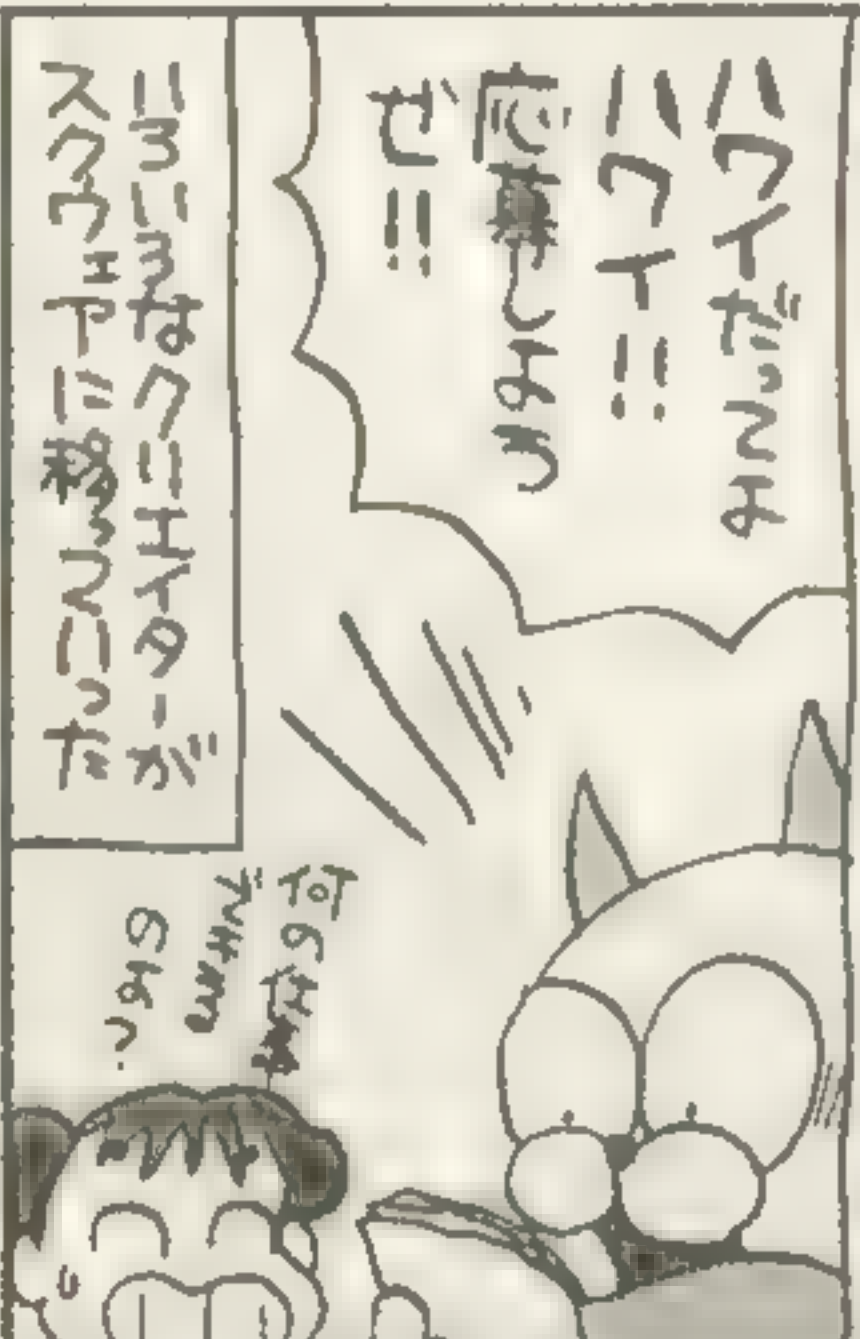 ハワイだってよ
ハワイ!!
応募しよう
ぜ!!
いろいろなクリエイターが
スクウェアに移っていった
何の仕事
でせぅ
のよ?